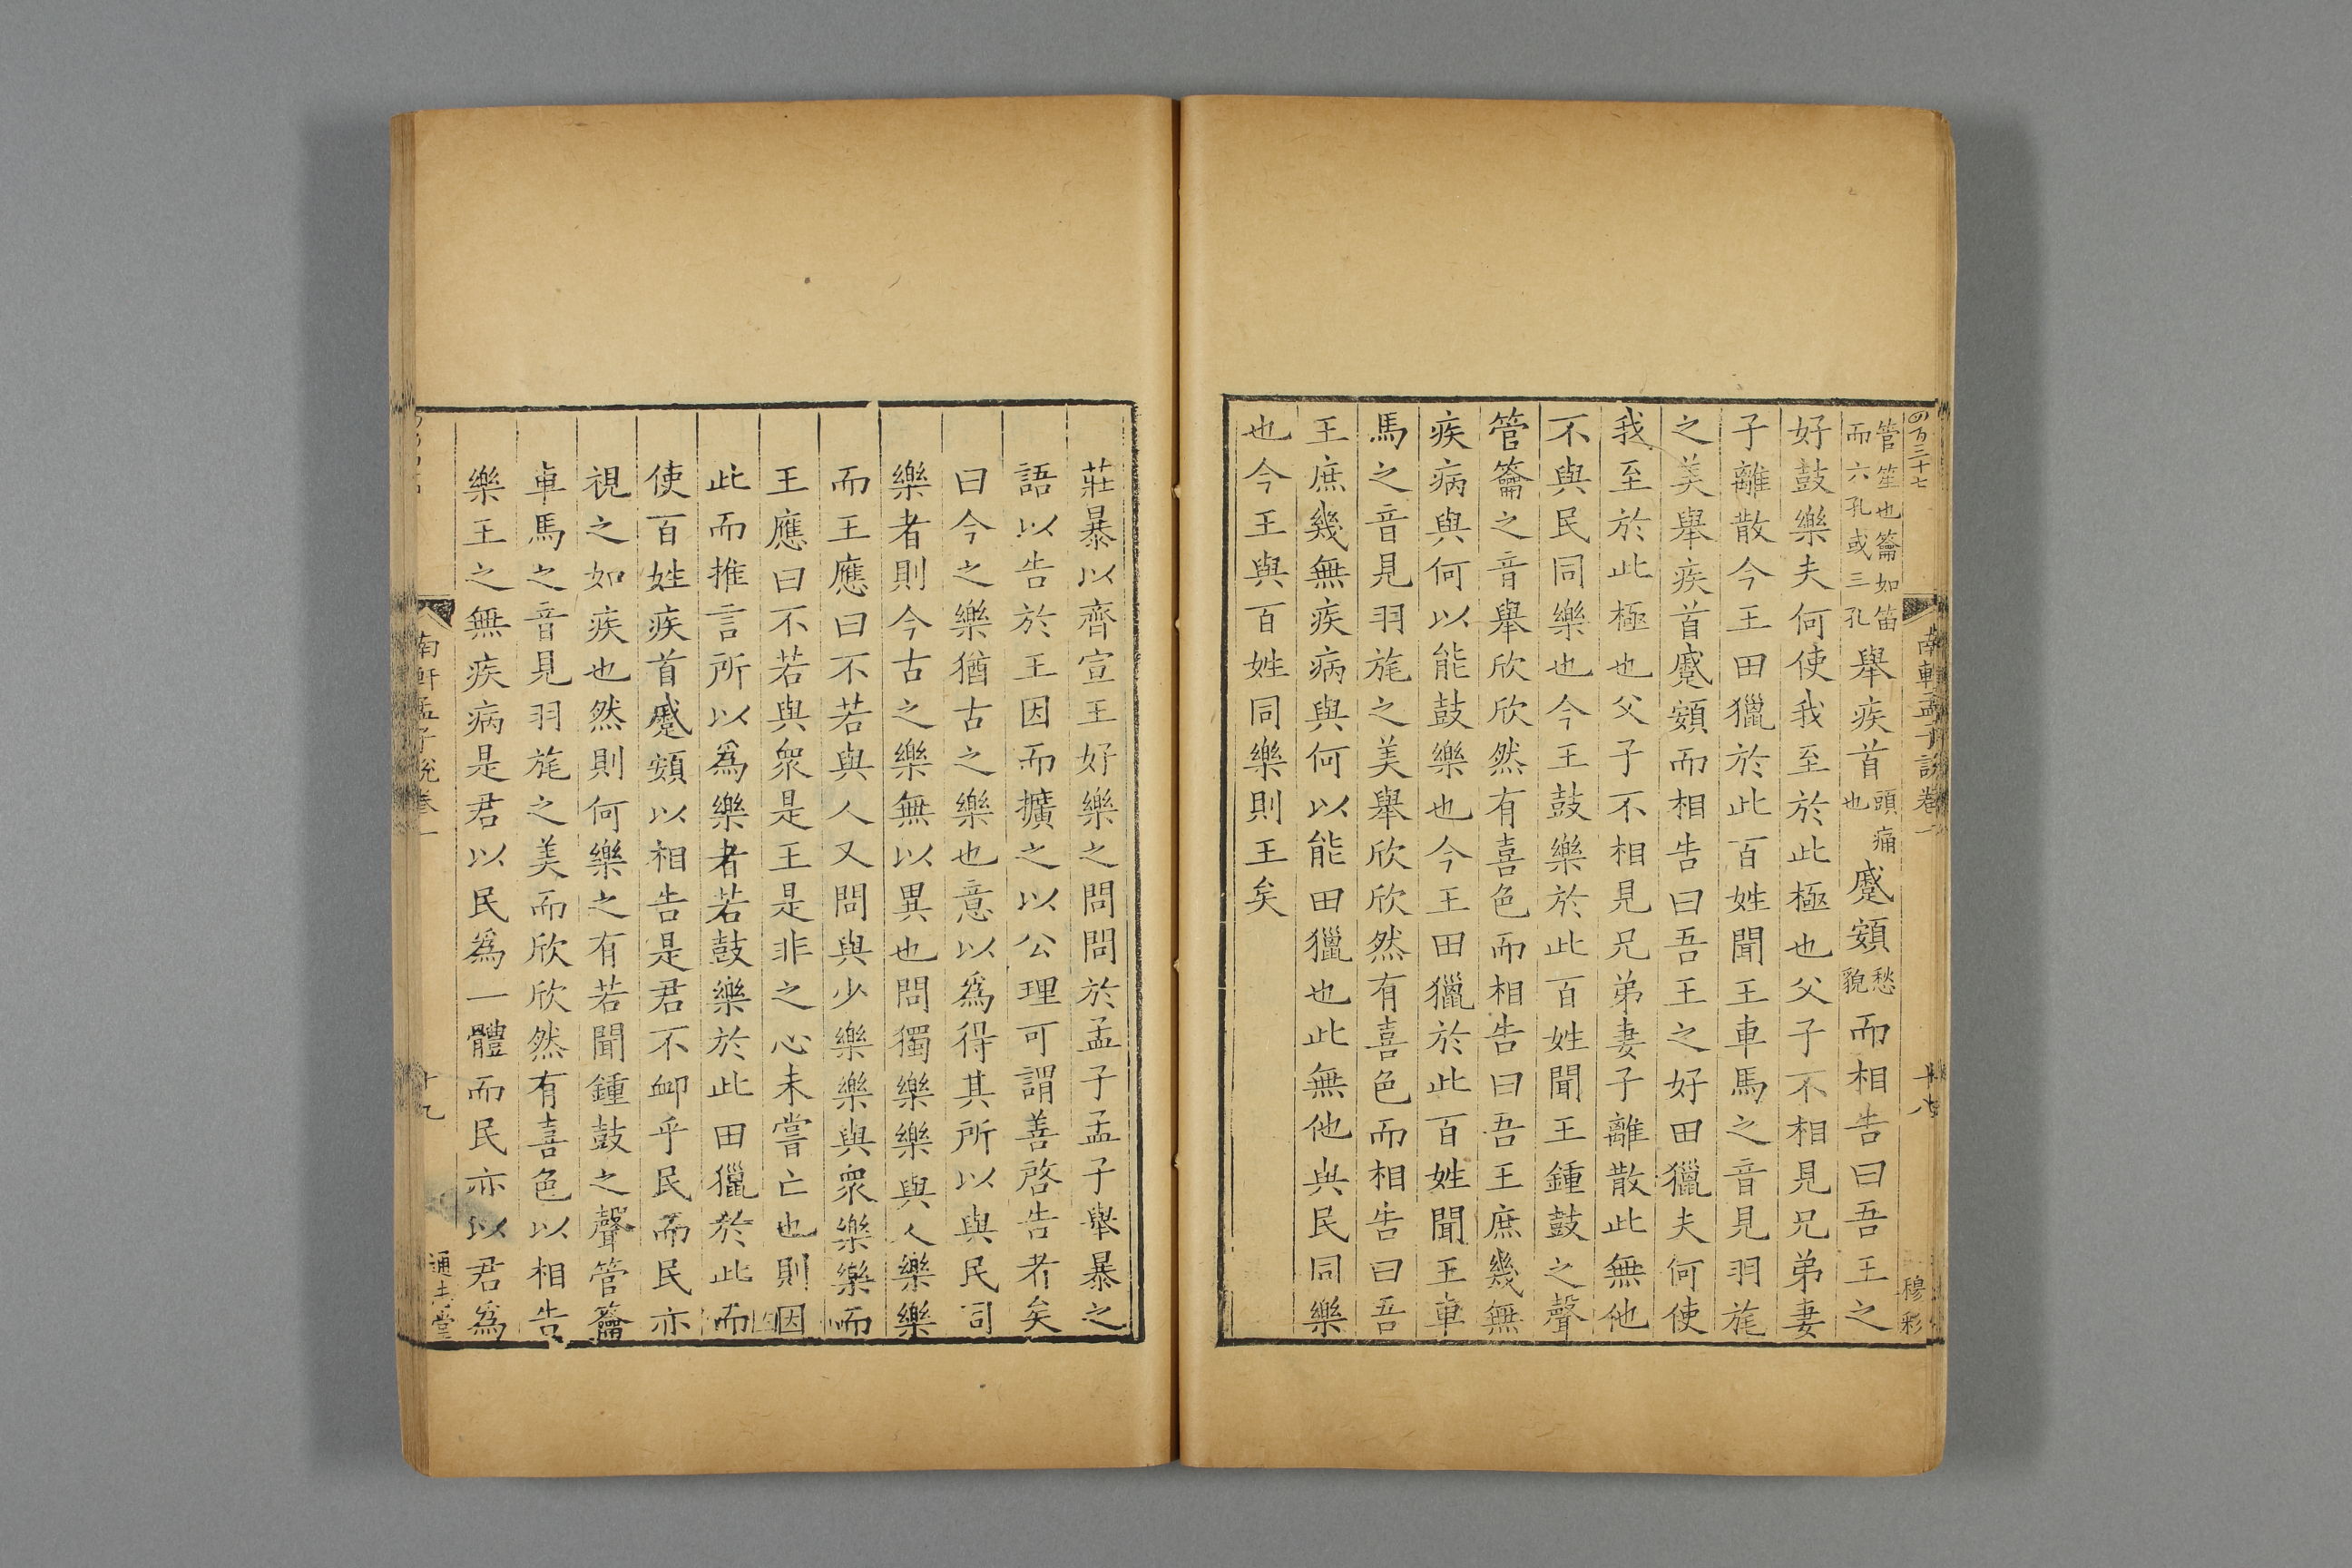 四百三十七
南軒孟子說卷一
十八
穆彩
管笙也籥如笛而六孔或三孔舉疾首頭痛也蹙頞愁貌而相告曰吾王之
好鼓樂夫何使我至於此極也父子不相見兄弟妻
子離散今王田獵於此百姓聞王車馬之音見羽旄
之美舉疾首蹙頞而相告曰吾王之好田獵夫何使
我至於此極也父子不相見兄弟妻子離散此無他
不與民同樂也今王鼓樂於此百姓聞王鍾鼓之聲
管籥之音舉欣欣然有喜色而相告曰吾王庶幾無
疾病與何以能鼓樂也今王田獵於此百姓聞王車
馬之音見羽旄之美舉欣欣然有喜色而相告曰吾
王庶幾無疾病與何以能田獵也此無他與民同樂
也今王與百姓同樂則王矣
莊暴以齊宣王好樂之問問於孟子孟子舉暴之
語以告於王因而擴之以公理可謂善啓告者矣
曰今之樂猶古之樂也意以為得其所以與民同
樂者則今古之樂無以異也問獨樂樂與人樂樂
而王應曰不若與人又問與少樂樂與衆樂樂而
王應曰不若與衆是王是非之心未嘗亡也則因
此而推言所以為樂者若鼓樂於此田獵於此而
使百姓疾首蹙頞以相告是君不卹乎民而民亦
視之如疾也然則何樂之有若聞鍾鼓之聲管籥
車馬之音見羽旄之美而欣欣然有喜色以相告
樂王之無疾病是君以民為一體而民亦以君為
南軒孟子說卷一
十九
通志堂